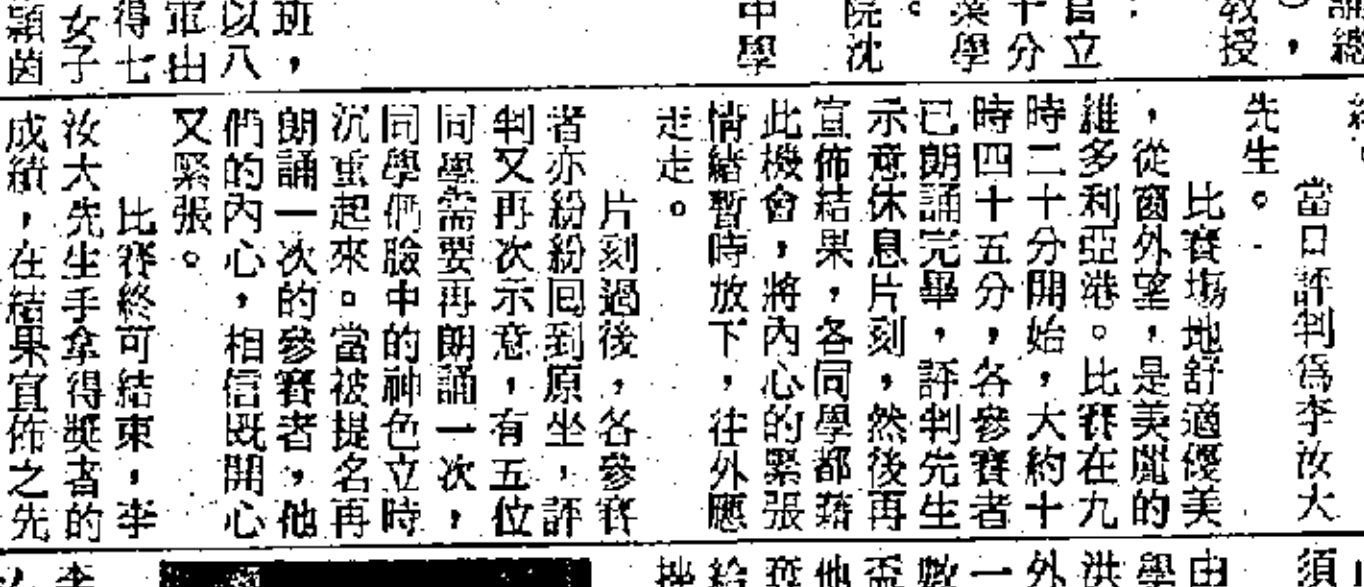 當日評判爲李汝大
先生。
比賽塲地舒適優美
，從窗外望，是美麗的
維多利亞港。比賽在九
時二十分開始，大約十
時四十五分，各參賽者
已朗誦完畢，評判先生
示意休息片刻，然後再
宣佈結果，各同學都藉
此機會，將內心的緊張
情緒暫時放下，往外應
走走。
片刻過後，各參賽
者亦紛紛囘到原坐，評
判又再次示意，有五位
同學需要再朗誦一次，
同學們臉中的神色立時
沉重起來。當被提名再
朗誦一次的參賽者，他
們的內心，相信既開心
又緊張。
比賽終可結束，李
汝大先生手拿得獎者的
成績，在結果宣佈之先